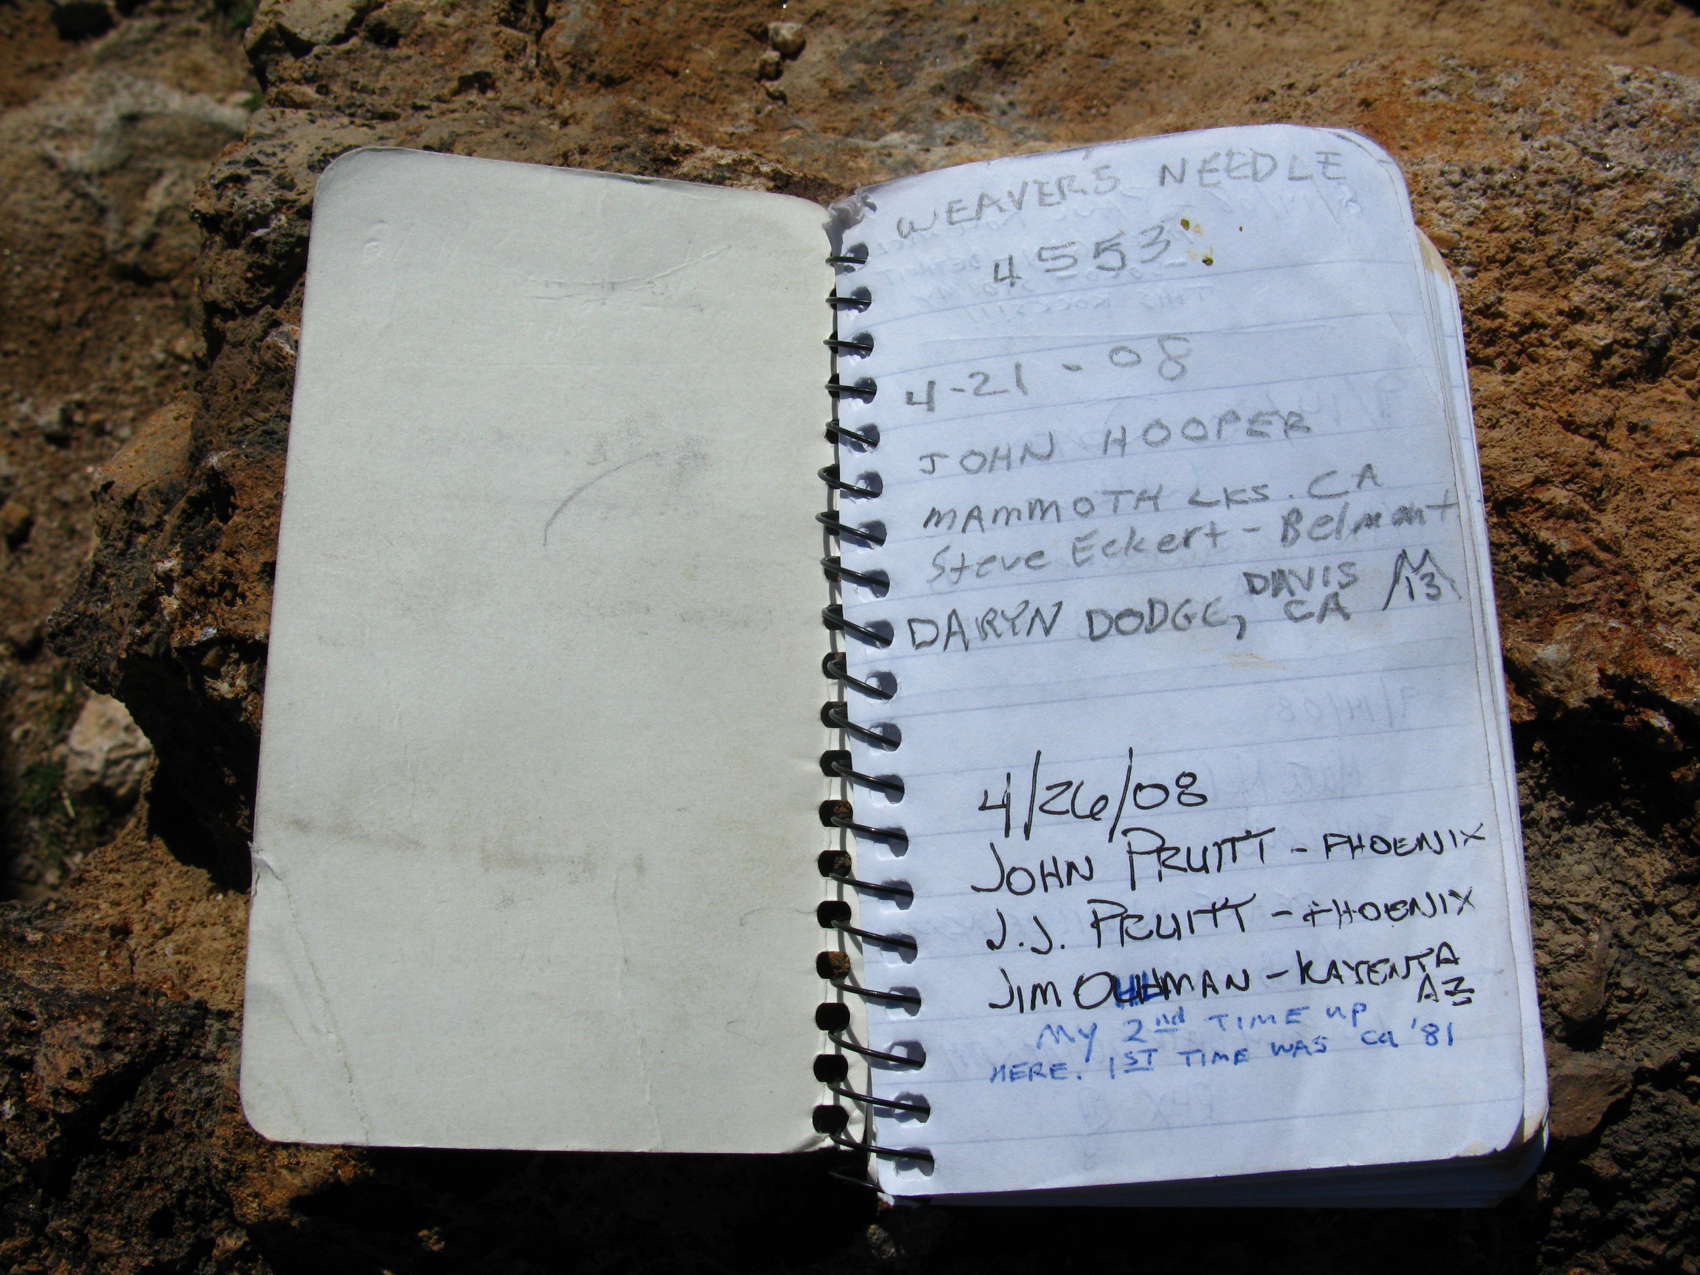 WEAVER'S NEEDLE
4553
4-21-08
JOHN HOOPER
MAMMOTH LKS. CA
Steve Eckert - Belmont
DARYN DODGE, DAVIS CA 13
4/26/08
JOHN PRUITT - PHOENIX
J.J. PRUITT - PHOENIX
JIM - KAYENTA
AZ
MY 2nd TIME UP
HERE. 1ST TIME WAS ca '81